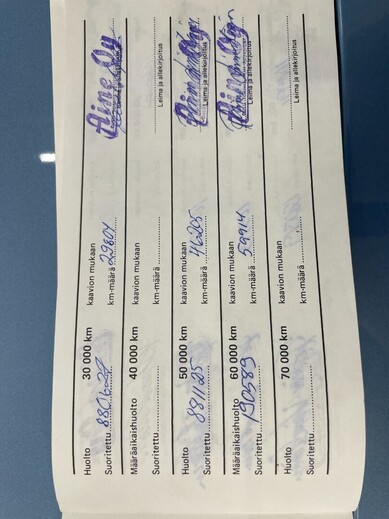 Huolto 30 000 km kaavion mukaan Aine Oy
Suoritettu 880627 km-määrä 29804
Määräaikaishuolto 40 000 km kaavion mukaan
Suoritettu km-määrä Leima ja allekirjoitus
Huolto 50 000 km kaavion mukaan
Suoritettu 881125 km-määrä 46205 Leima ja allekirjoitus
Määräaikaishuolto 60 000 km kaavion mukaan
Suoritettu 190589 km-määrä 59914 Leima ja allekirjoitus
Huolto 70 000 km kaavion mukaan
Suoritettu km-määrä Leima ja allekirjoitus